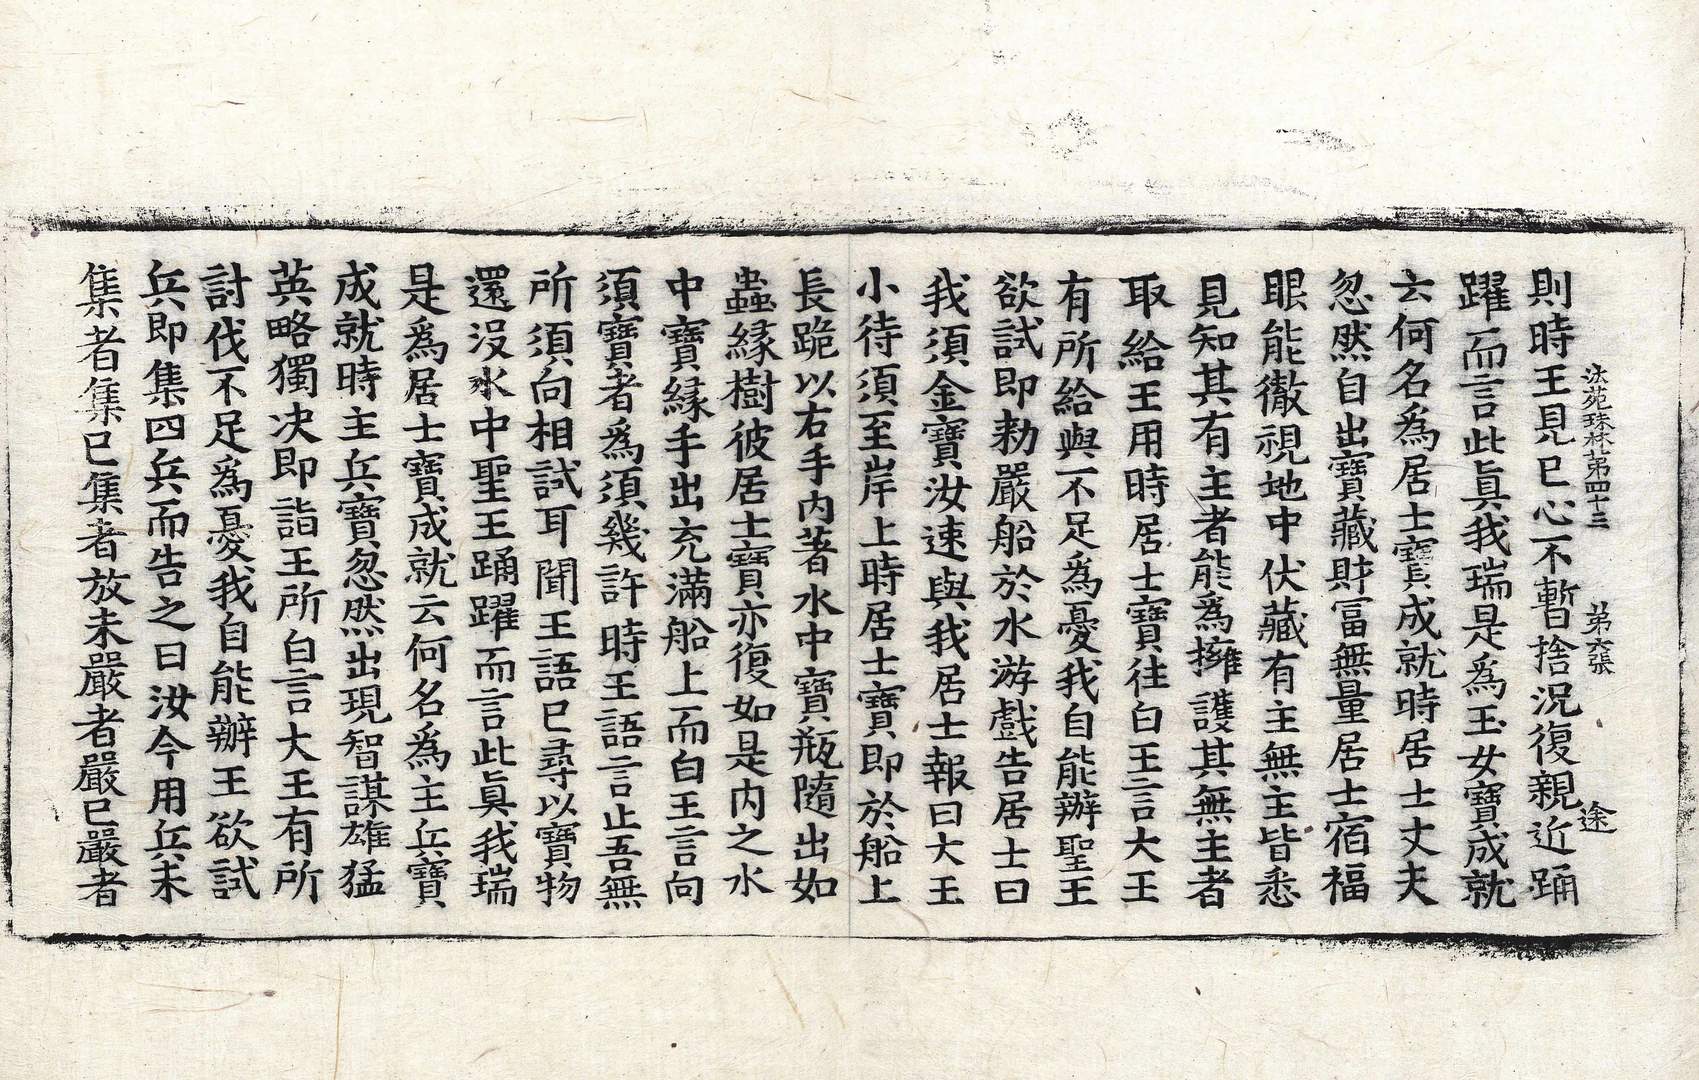 法苑珠林第四十三 第六張 途
則時王見已心不暫捨況復親近踊
躍而言此真我瑞是為玉女寶成就
云何名為居士寶成就時居士丈夫
忽然自出寶藏財富無量居士宿福
眼能徹視地中伏藏有主無主皆悉
見知其有主者能為擁護其無主者
取給王用時居士寶往白王言大王
有所給與不足為憂我自能辦聖王
欲試即勑嚴船於水游戲告居士曰
我須金寶汝速與我居士報曰大王
小待須至岸上時居士寶即於船上
長跪以右手內著水中寶瓶隨出如
蟲緣樹彼居士寶亦復如是內之水
中寶緣手出充滿船上而白王言向
須寶者為須幾許時王語言止吾無
所須向相試耳聞王語已尋以寶物
還沒水中聖王踊躍而言此真我瑞
是為居士寶成就云何名為主兵寶
成就時主兵寶忽然出現智謀雄猛
英略獨決即詣王所白言大王有所
討伐不足為憂我自能辦王欲試
兵即集四兵而告之曰汝今用兵未
集者集已集者放未嚴者嚴已嚴者